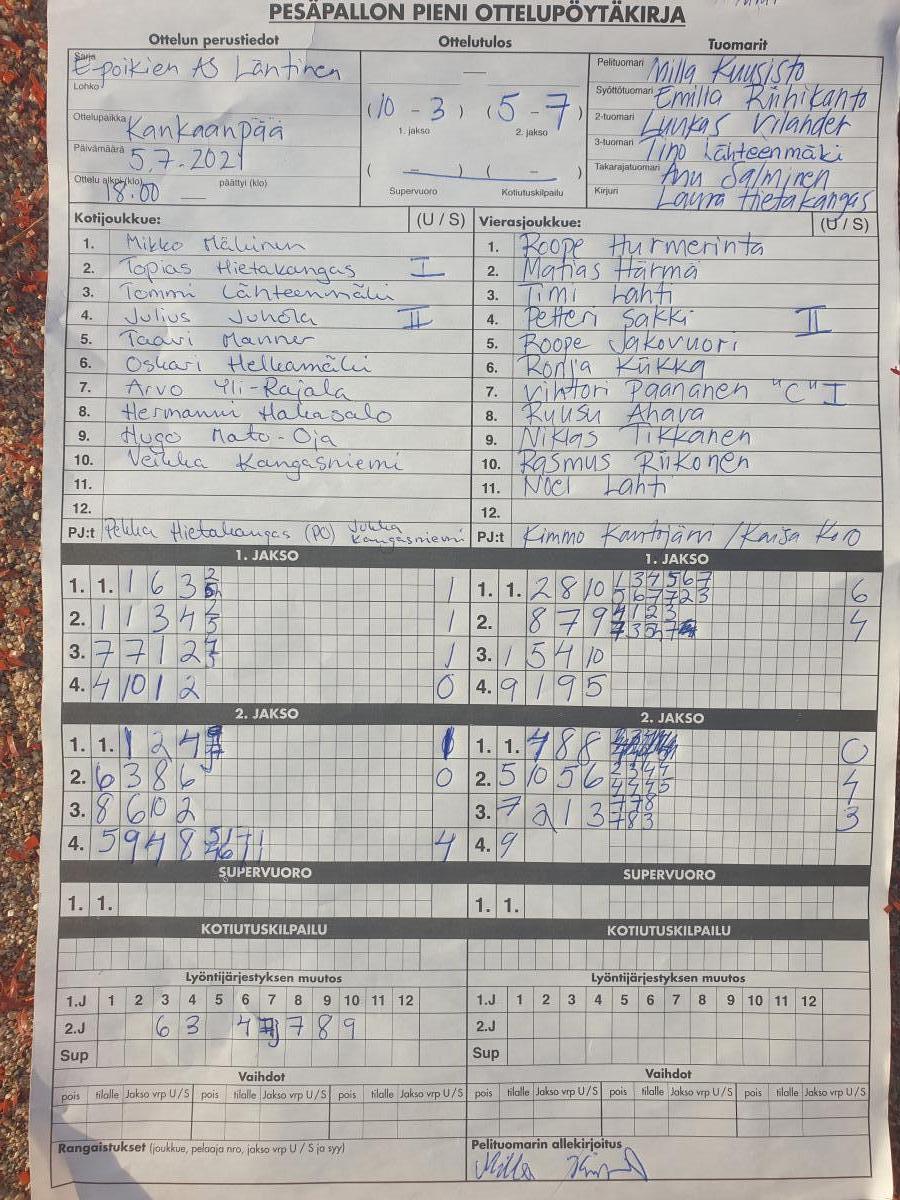 PESÄPALLON PIENI OTTELUPÖYTÄKIRJA
Ottelun perustiedot Ottelutulos Tuomarit
Sarja E-poikien AS Läntinen
Lohko
Ottelupaikka Kankaanpää
Päivämäärä 5.7.2021
Ottelu alkoi (klo) 18.00 päättyi (klo) —
—
(10 - 3) (5 - 7)
1. jakso 2. jakso
( – ) ( – )
Supervuoro Kotiutuskilpailu
Pelituomari Milla Kuusisto
Syöttötuomari Emilia Riihikanto
2-tuomari Luukas Vilander
3-tuomari Tino Lähteenmäki
Takarajatuomari Anu Salminen
Kirjuri Laura Hietakangas
Kotijoukkue: (U / S)
1. Mikko Mäkinen
2. Topias Hietakangas I
3. Tommi Lähteenmäki
4. Julius Juhola II
5. Taavi Manner
6. Oskari Helkamäki
7. Arvo Yli-Rajala
8. Hermanni Hakasalo
9. Hugo Mato-Oja
10. Veikka Kangasniemi
11.
12.
PJ:t Pekka Hietakangas (PO) Jukka Kangasniemi
Vierasjoukkue: (U / S)
1. Roope Hurmerinta
2. Matias Härmä
3. Timi Lahti
4. Petteri Sakki II
5. Roope Jakovuori
6. Ronja Kiikka
7. Vihtori Paananen "C" I
8. Ruusu Ahava
9. Niklas Tikkanen
10. Rasmus Riikonen
11. Noel Lahti
12.
PJ:t Kimmo Kantojärvi / Kaisa
1. JAKSO
1. 1. 1 6 3 1
2. 1 1 3 4 1
3. 7 7 1 2 1
4. 4 10 1 2 0
1. JAKSO
1. 1. 2 8 10 1 3 4 5 6 7 6
5 6 7 7 2 3
2. 8 7 9 4 1 2 3 4
3. 1 5 4 10
4. 9 1 9 5
2. JAKSO
1. 1. 1 2 4 1
2. 6 3 8 6 0
3. 8 6 10 2
4. 5 9 4 8 4
2. JAKSO
1. 1. 4 8 8 0
2. 5 10 5 6 2 3 4 4 4
4 4 4 5
3. 7 2 1 3 7 7 8 3
7 8 3
4. 9
SUPERVUORO
1. 1.
SUPERVUORO
1. 1.
KOTIUTUSKILPAILU
KOTIUTUSKILPAILU
Lyöntijärjestyksen muutos
1.J 1 2 3 4 5 6 7 8 9 10 11 12
2.J 6 3 4 7 8 9
Sup
Lyöntijärjestyksen muutos
1.J 1 2 3 4 5 6 7 8 9 10 11 12
2.J
Sup
Vaihdot
pois tilalle Jakso vrp U / S pois tilalle Jakso vrp U / S pois tilalle Jakso vrp U / S
Vaihdot
pois tilalle Jakso vrp U / S pois tilalle Jakso vrp U / S pois tilalle Jakso vrp U / S
Rangaistukset (joukkue, pelaaja nro, jakso vrp U / S ja syy)
Pelituomarin allekirjoitus
Milla